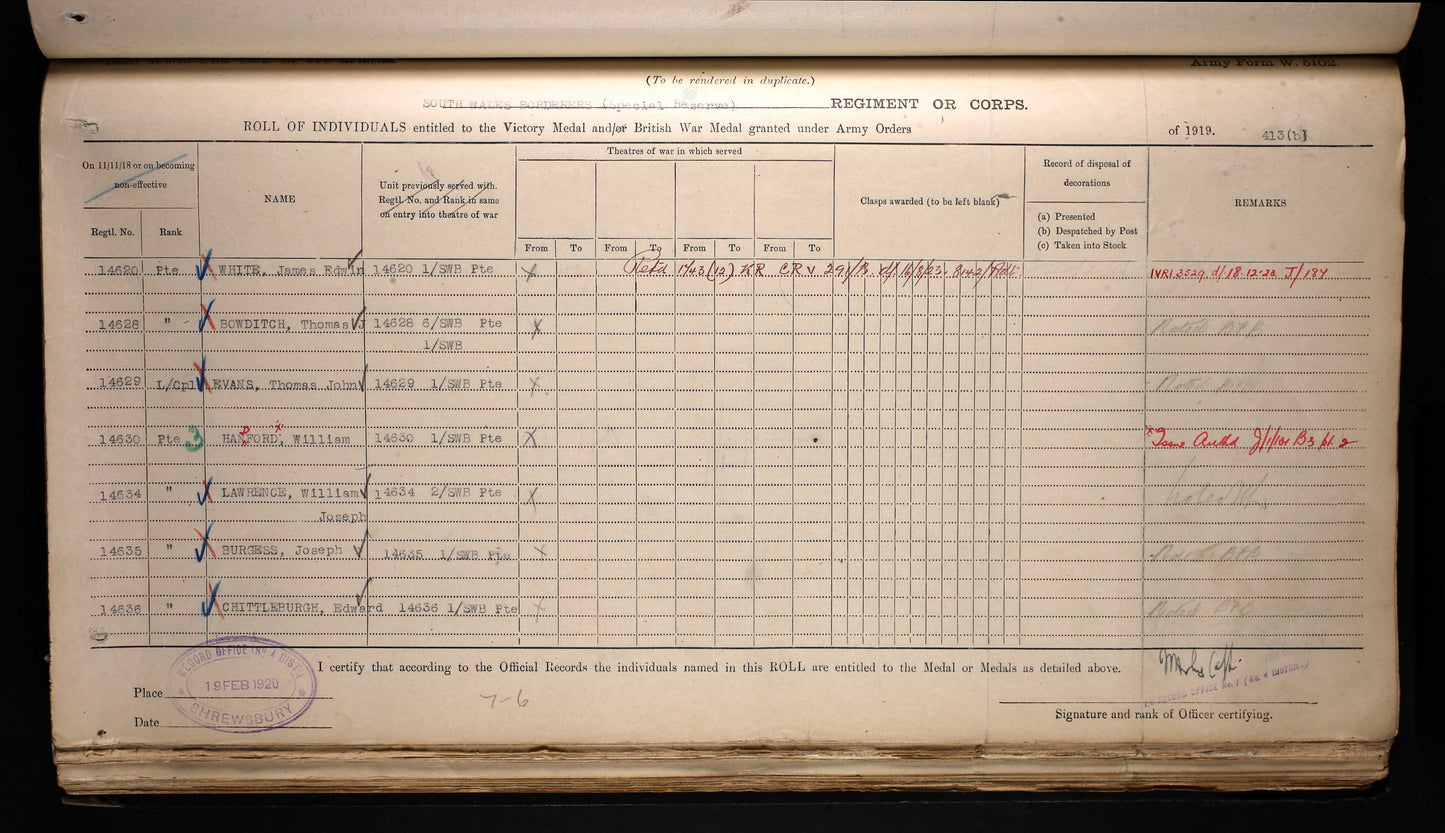 Army Form W. 5102.
(To be rendered in duplicate.)
SOUTH WALES BORDERERS (Special Reserve) REGIMENT OR CORPS.
ROLL OF INDIVIDUALS entitled to the Victory Medal and/or British War Medal granted under Army Orders of 1919. 413(b)
On 11/11/18 or on becoming
non-effective
Regtl. No. Rank
NAME
Unit previously served with.
Regtl. No. and Rank in same
on entry into theatre of war
Theatres of war in which served
From To From To From To From To
Clasps awarded (to be left blank)
Record of disposal of
decorations
(a) Presented
(b) Despatched by Post
(c) Taken into Stock
REMARKS
14620 Pte WHITE, James Edwin 14620 1/SWB Pte Retd 1743 (12) KR CRV IVR/3529 d/18.12.23 J/184
14628 " BOWDITCH, Thomas J 14628 6/SWB Pte
1/SWB
14629 L/Cpl EVANS, Thomas John 14629 1/SWB Pte
14630 Pte 3 HANFORD, William 14630 1/SWB Pte
14634 " LAWRENCE, William 14634 2/SWB Pte
Joseph
14635 " BURGESS, Joseph 14635 1/SWB Pte
14636 " CHITTLEBURGH, Edward 14636 1/SWB Pte
I certify that according to the Official Records the individuals named in this ROLL are entitled to the Medal or Medals as detailed above.
RECORD OFFICE (No 4 DIST.)
19 FEB 1920
SHREWSBURY
Place
Date
7-6
RECORD OFFICE No. 1 (No. 4 DISTRICT)
Signature and rank of Officer certifying.